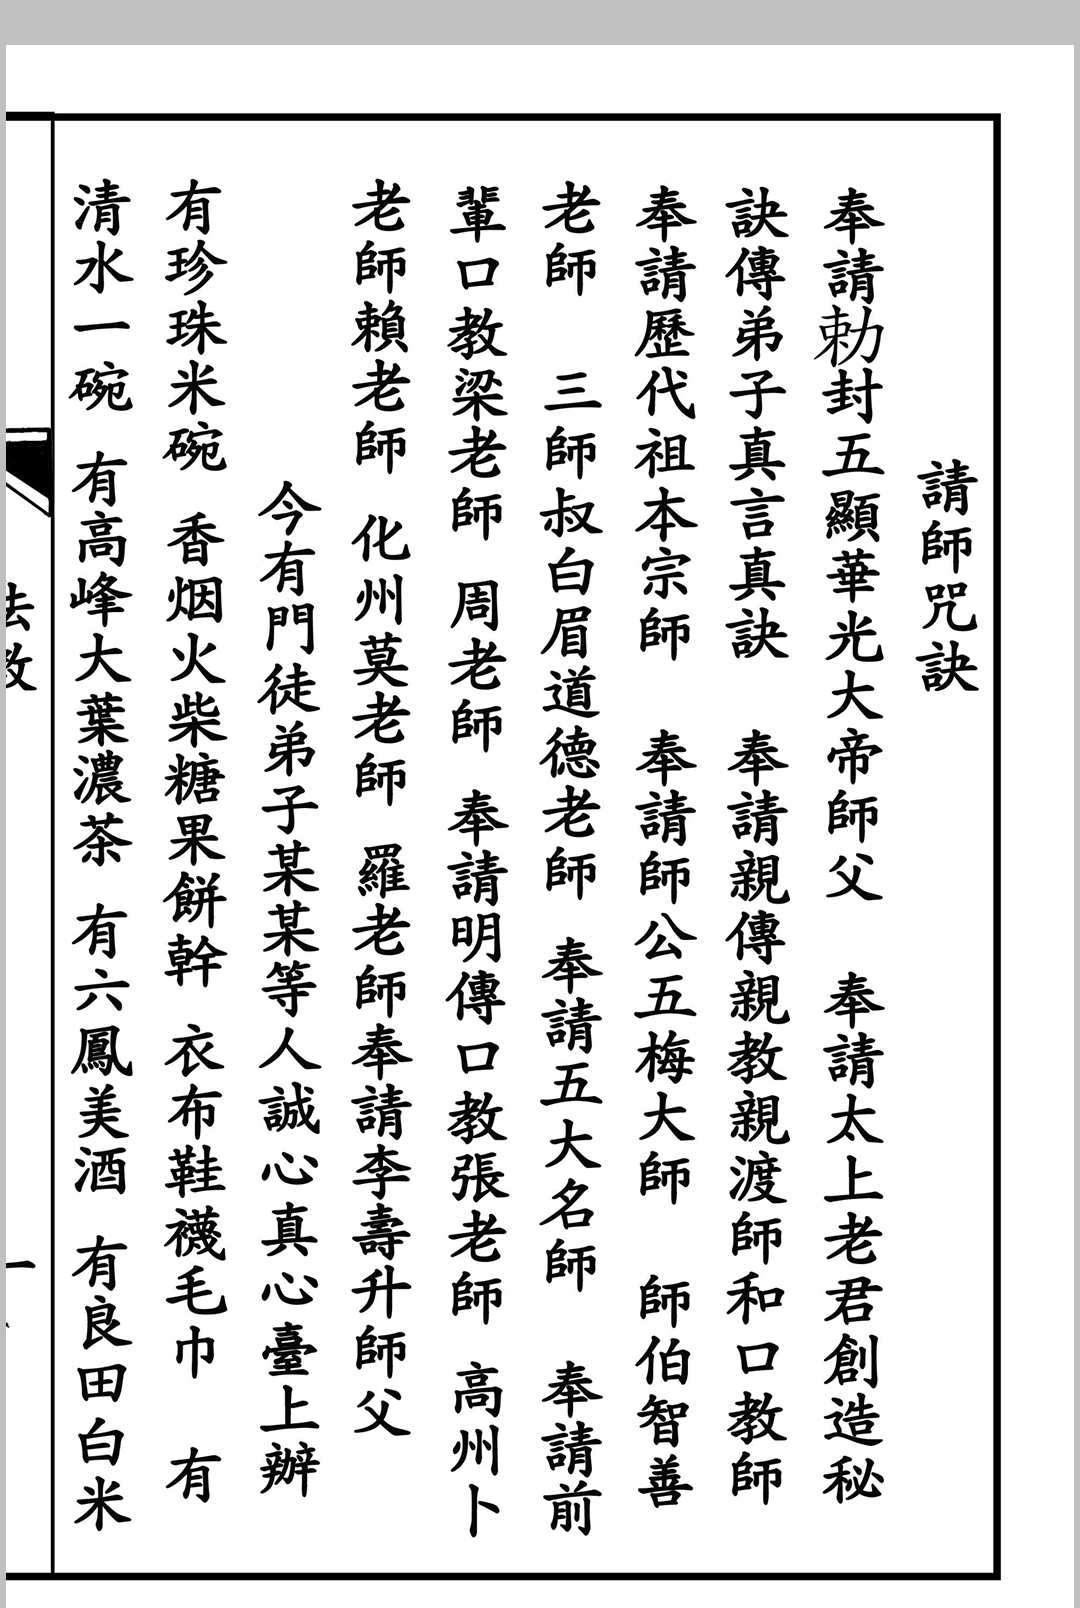 請師咒訣
奉請勅封五顯華光大帝師父　奉請太上老君創造秘
訣傳弟子真言真訣　奉請親傳親教親渡師和口教師
奉請歷代祖本宗師　奉請師公五梅大師　師伯智善
老師　三師叔白眉道德老師　奉請五大名師　奉請前
輩口教梁老師　周老師　奉請明傳口教張老師　高州卜
老師賴老師　化州莫老師　羅老師奉請李壽升師父
今有門徒弟子某某等人誠心真心臺上辦
有珍珠米碗　香烟火柴糖果餅幹　衣布鞋襪毛巾　有
清水一碗　有高峰大葉濃茶　有六鳳美酒　有良田白米
法教
一